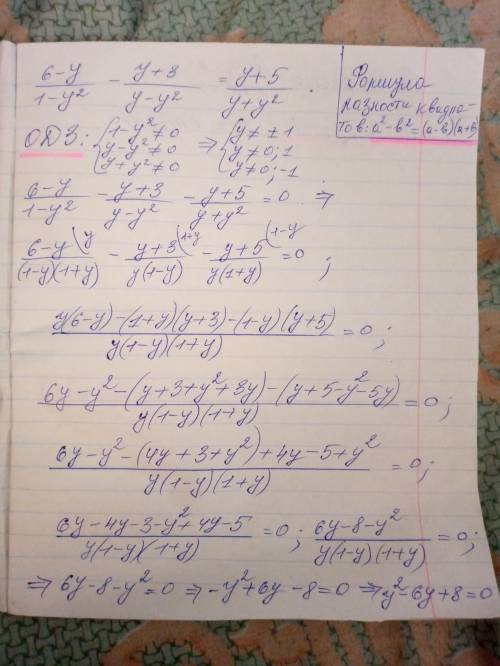 (6-y)/(1-y²) - (y+3)/(y-y²) = (y+5)/(y+y²) .
Формула
разности квадра-
тов: a²-в²=(a-в)(a+в)
ОДЗ: { 1-y²≠0 ⇒ { y≠±1
y-y²≠0 y≠0;1
y+y²≠0 y≠0;-1
(6-y)/(1-y²) - (y+3)/(y-y²) - (y+5)/(y+y²) = 0 . ⇒
(6-y\y)/((1-y)(1+y)) - (y+3\1+y)/(y(1-y)) - (y+5\1-y)/(y(1+y)) = 0 ;
(y(6-y)-(1+y)(y+3)-(1-y)(y+5))/(y(1-y)(1+y)) = 0 ;
(6y-y²-(y+3+y²+3y)-(y+5-y²-5y))/(y(1-y)(1+y)) = 0 ;
(6y-y²-(4y+3+y²)+4y-5+y²)/(y(1-y)(1+y)) = 0 ;
(6y-4y-3-y²+4y-5)/(y(1-y)(1+y)) = 0 ; (6y-8-y²)/(y(1-y)(1+y)) = 0 ;
⇒ 6y-8-y²=0 ⇒ -y²+6y-8=0 ⇒ y²-6y+8=0